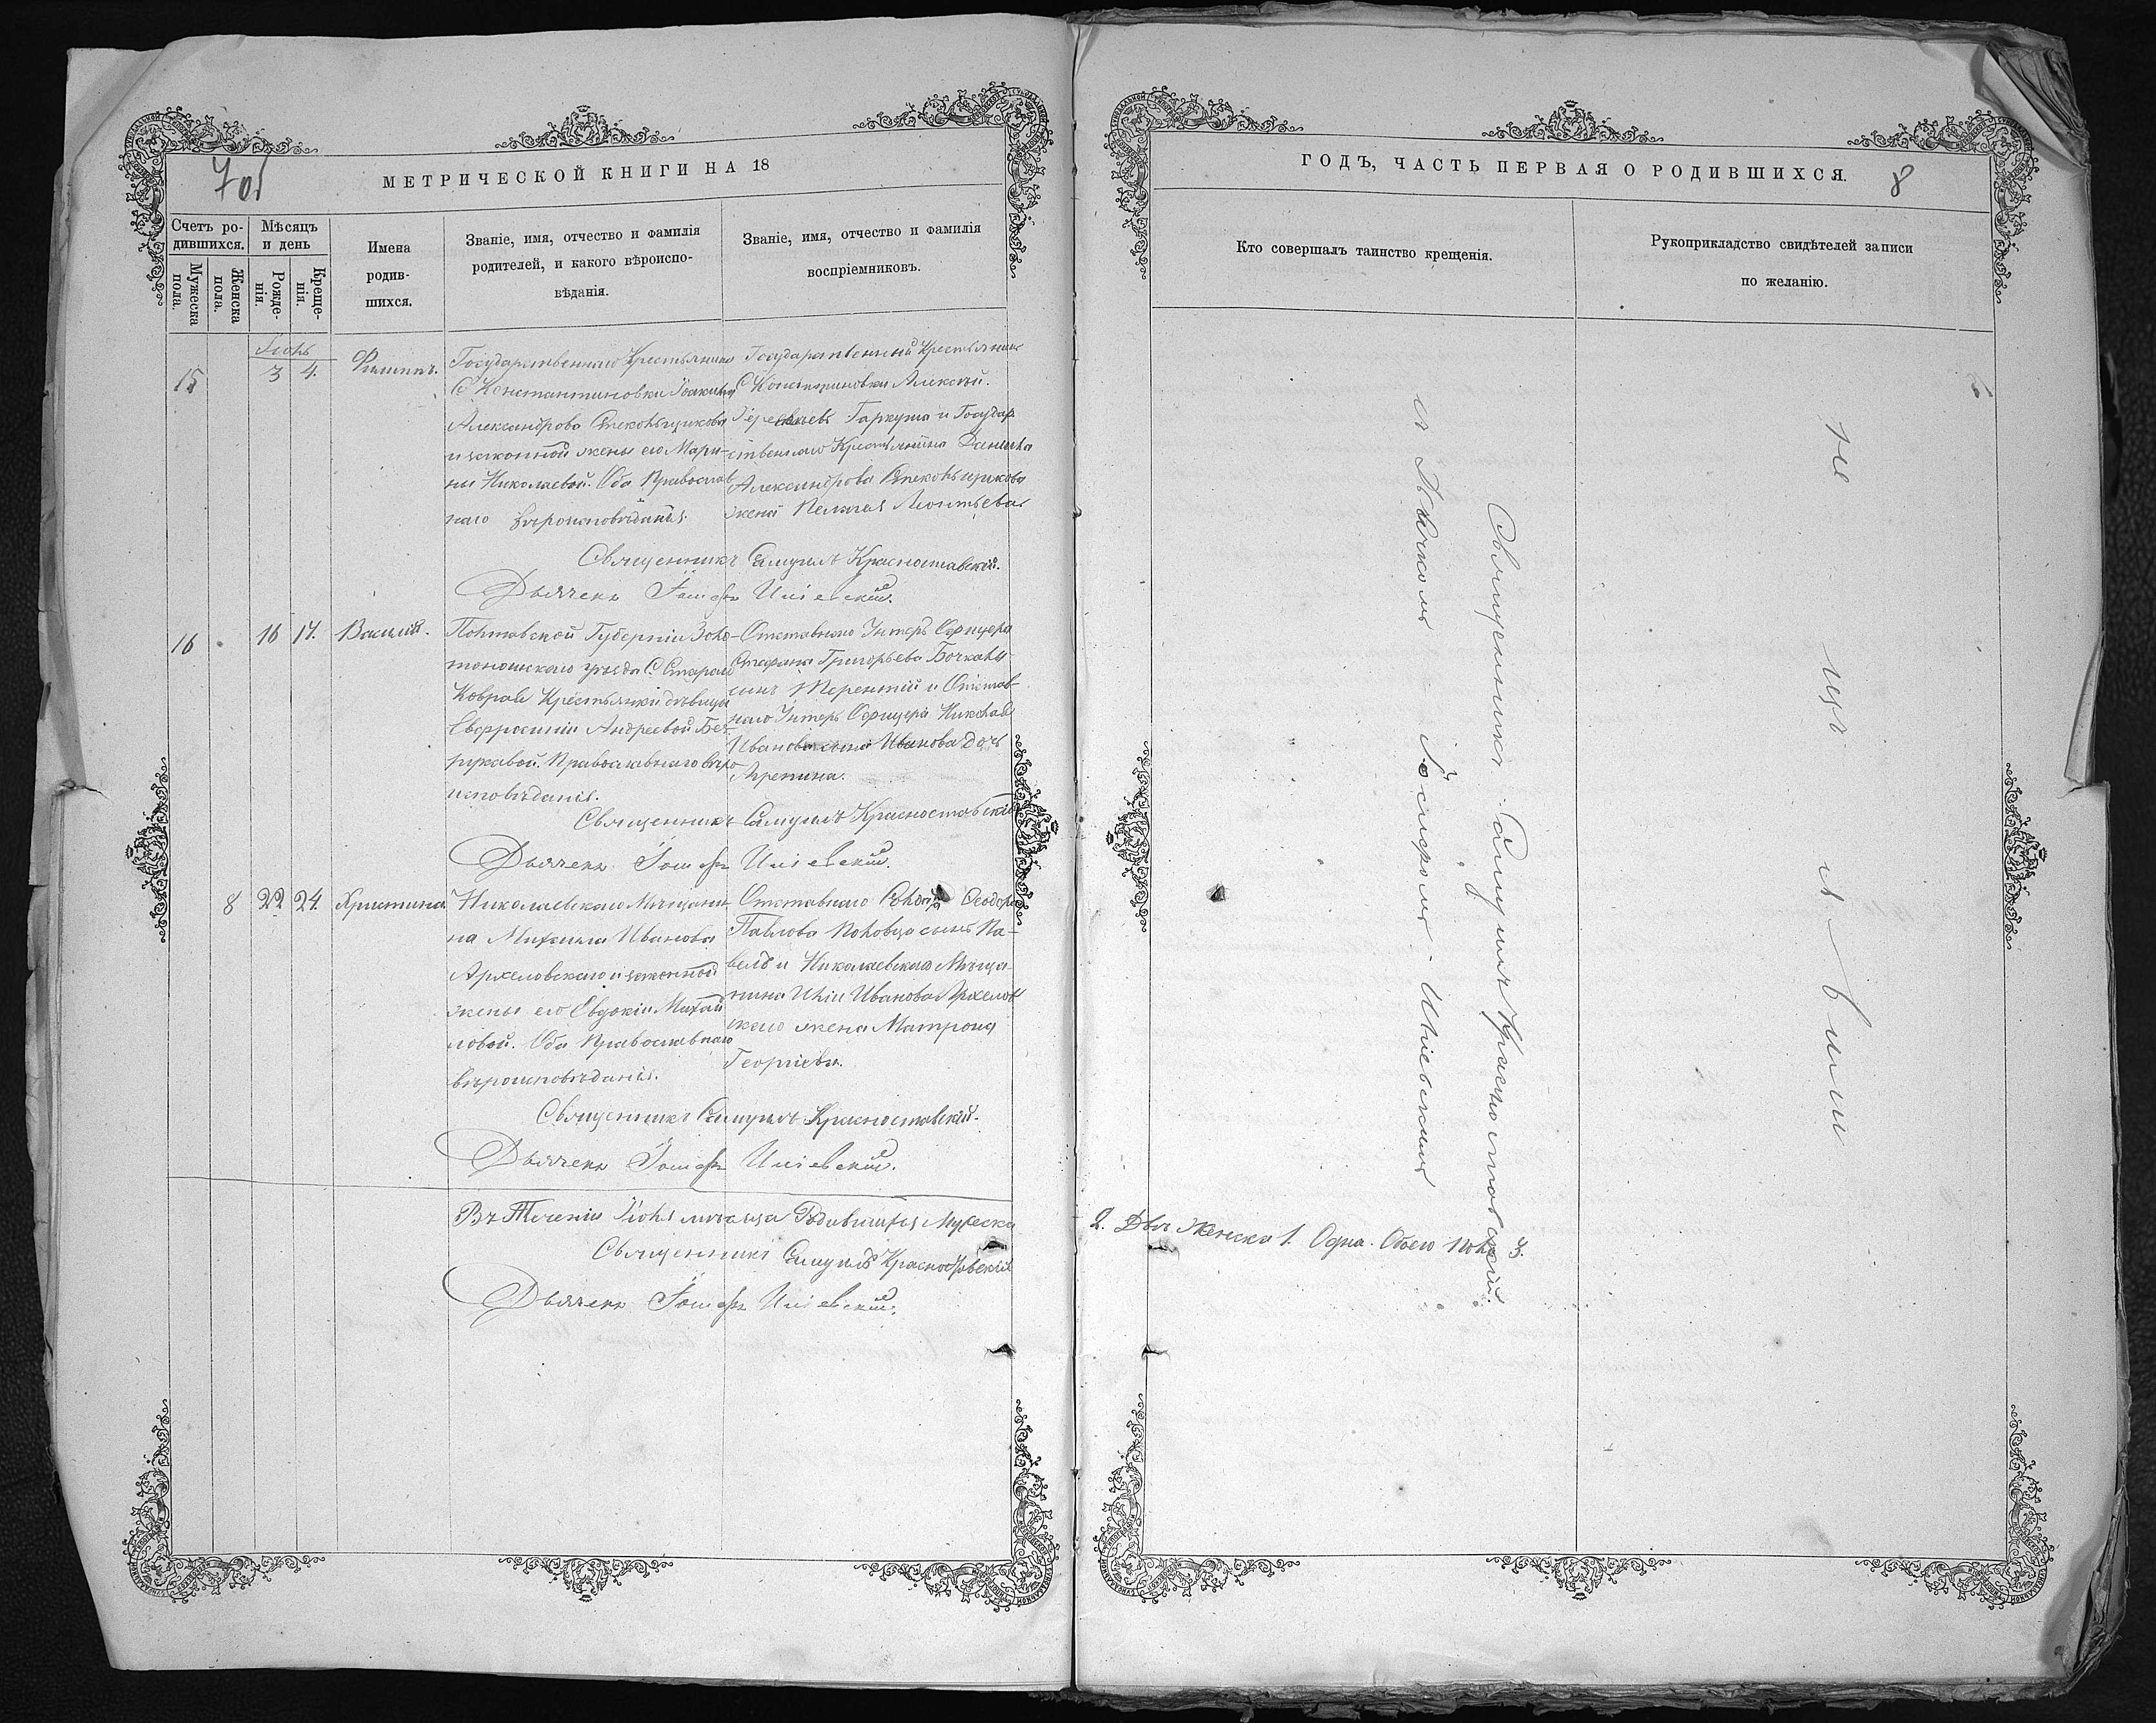 7об
МЕТРИЧЕСКОЙ КНИГИ НА 18
Счетъ ро-
дившихся.
Мѣсяцъ
и день
Мужеска
пола.
Женска
пола.
Рожде-
нія.
Креще-
нія.
Имена
родив-
шихся.
Званіе, имя, отчество и фамилія
родителей, и какого вѣроиспо-
вѣданія.
Званіе, имя, отчество и фамилія
воспріемниковъ.
15
Іюнь
3 4.
Филиппъ.
Государственнаго Крестьянина
С. Константиновки Іоакима
Александрова Стекольщикова
и законной жены его Мари-
ны Николаевой. Оба Православ
наго вѣроисповѣданія.
Государственный Крестьянинъ
С. Константиновки Алексѣй
Гаркуша и Государ
ственнаго Крестьянина Данила
Александрова Стекольщикова
жена Пелагія Леонтьева
Священникъ Самуилъ Красноставскій.
Дьячекъ Іосифъ Ильевскій.
16
16 17.
Василій.
Полтавской Губерніи Золо-
тоношскаго уѣзда С. Стараго
Коврая Крестьянки дѣвицы
Евфросиніи Андреевой Без-
рукавой. Православнаго вѣро-
исповѣданія.
Отставнаго Унтеръ Офицера
Стефана Григорьева Бочкалы
сынъ Терентій и Отстав-
наго Унтеръ Офицера Николая
Иванова дочь
Ирина.
Священникъ Самуилъ Красноставскій
Дьячекъ Іосифъ Ильевскій.
8
22 24.
Христина.
Николаевскаго Мѣщани-
на Михаила Иванова
Археловскаго и законной
жены его Евдокіи Михай
ловой. Оба Православнаго
вѣроисповѣданія.
Отставнаго Солдата Ѳеодора
Павлова Половца сынъ Па-
велъ и Николаевскаго Мѣща-
нина Иліи Иванова Архелов
скаго жена Матрона
Георгіева.
Священникъ Самуилъ Красноставскій.
Дьячекъ Іосифъ Ильевскій.
Въ Теченіи Іюня мѣсяца Родившихся Мужеска
Священникъ Самуилъ Красноставскій
Дьячекъ Іосифъ Ильевскій.
ГОДЪ, ЧАСТЬ ПЕРВАЯ О РОДИВШИХСЯ.
8
Кто совершалъ таинство крещенія.
Рукоприкладство свидѣтелей записи
по желанію.
Священникъ Самуилъ Красноставскій.
съ Дьячкомъ Іосифомъ Ильевскимъ
2. Два Женска 1. Одна. Обоего пола 3.